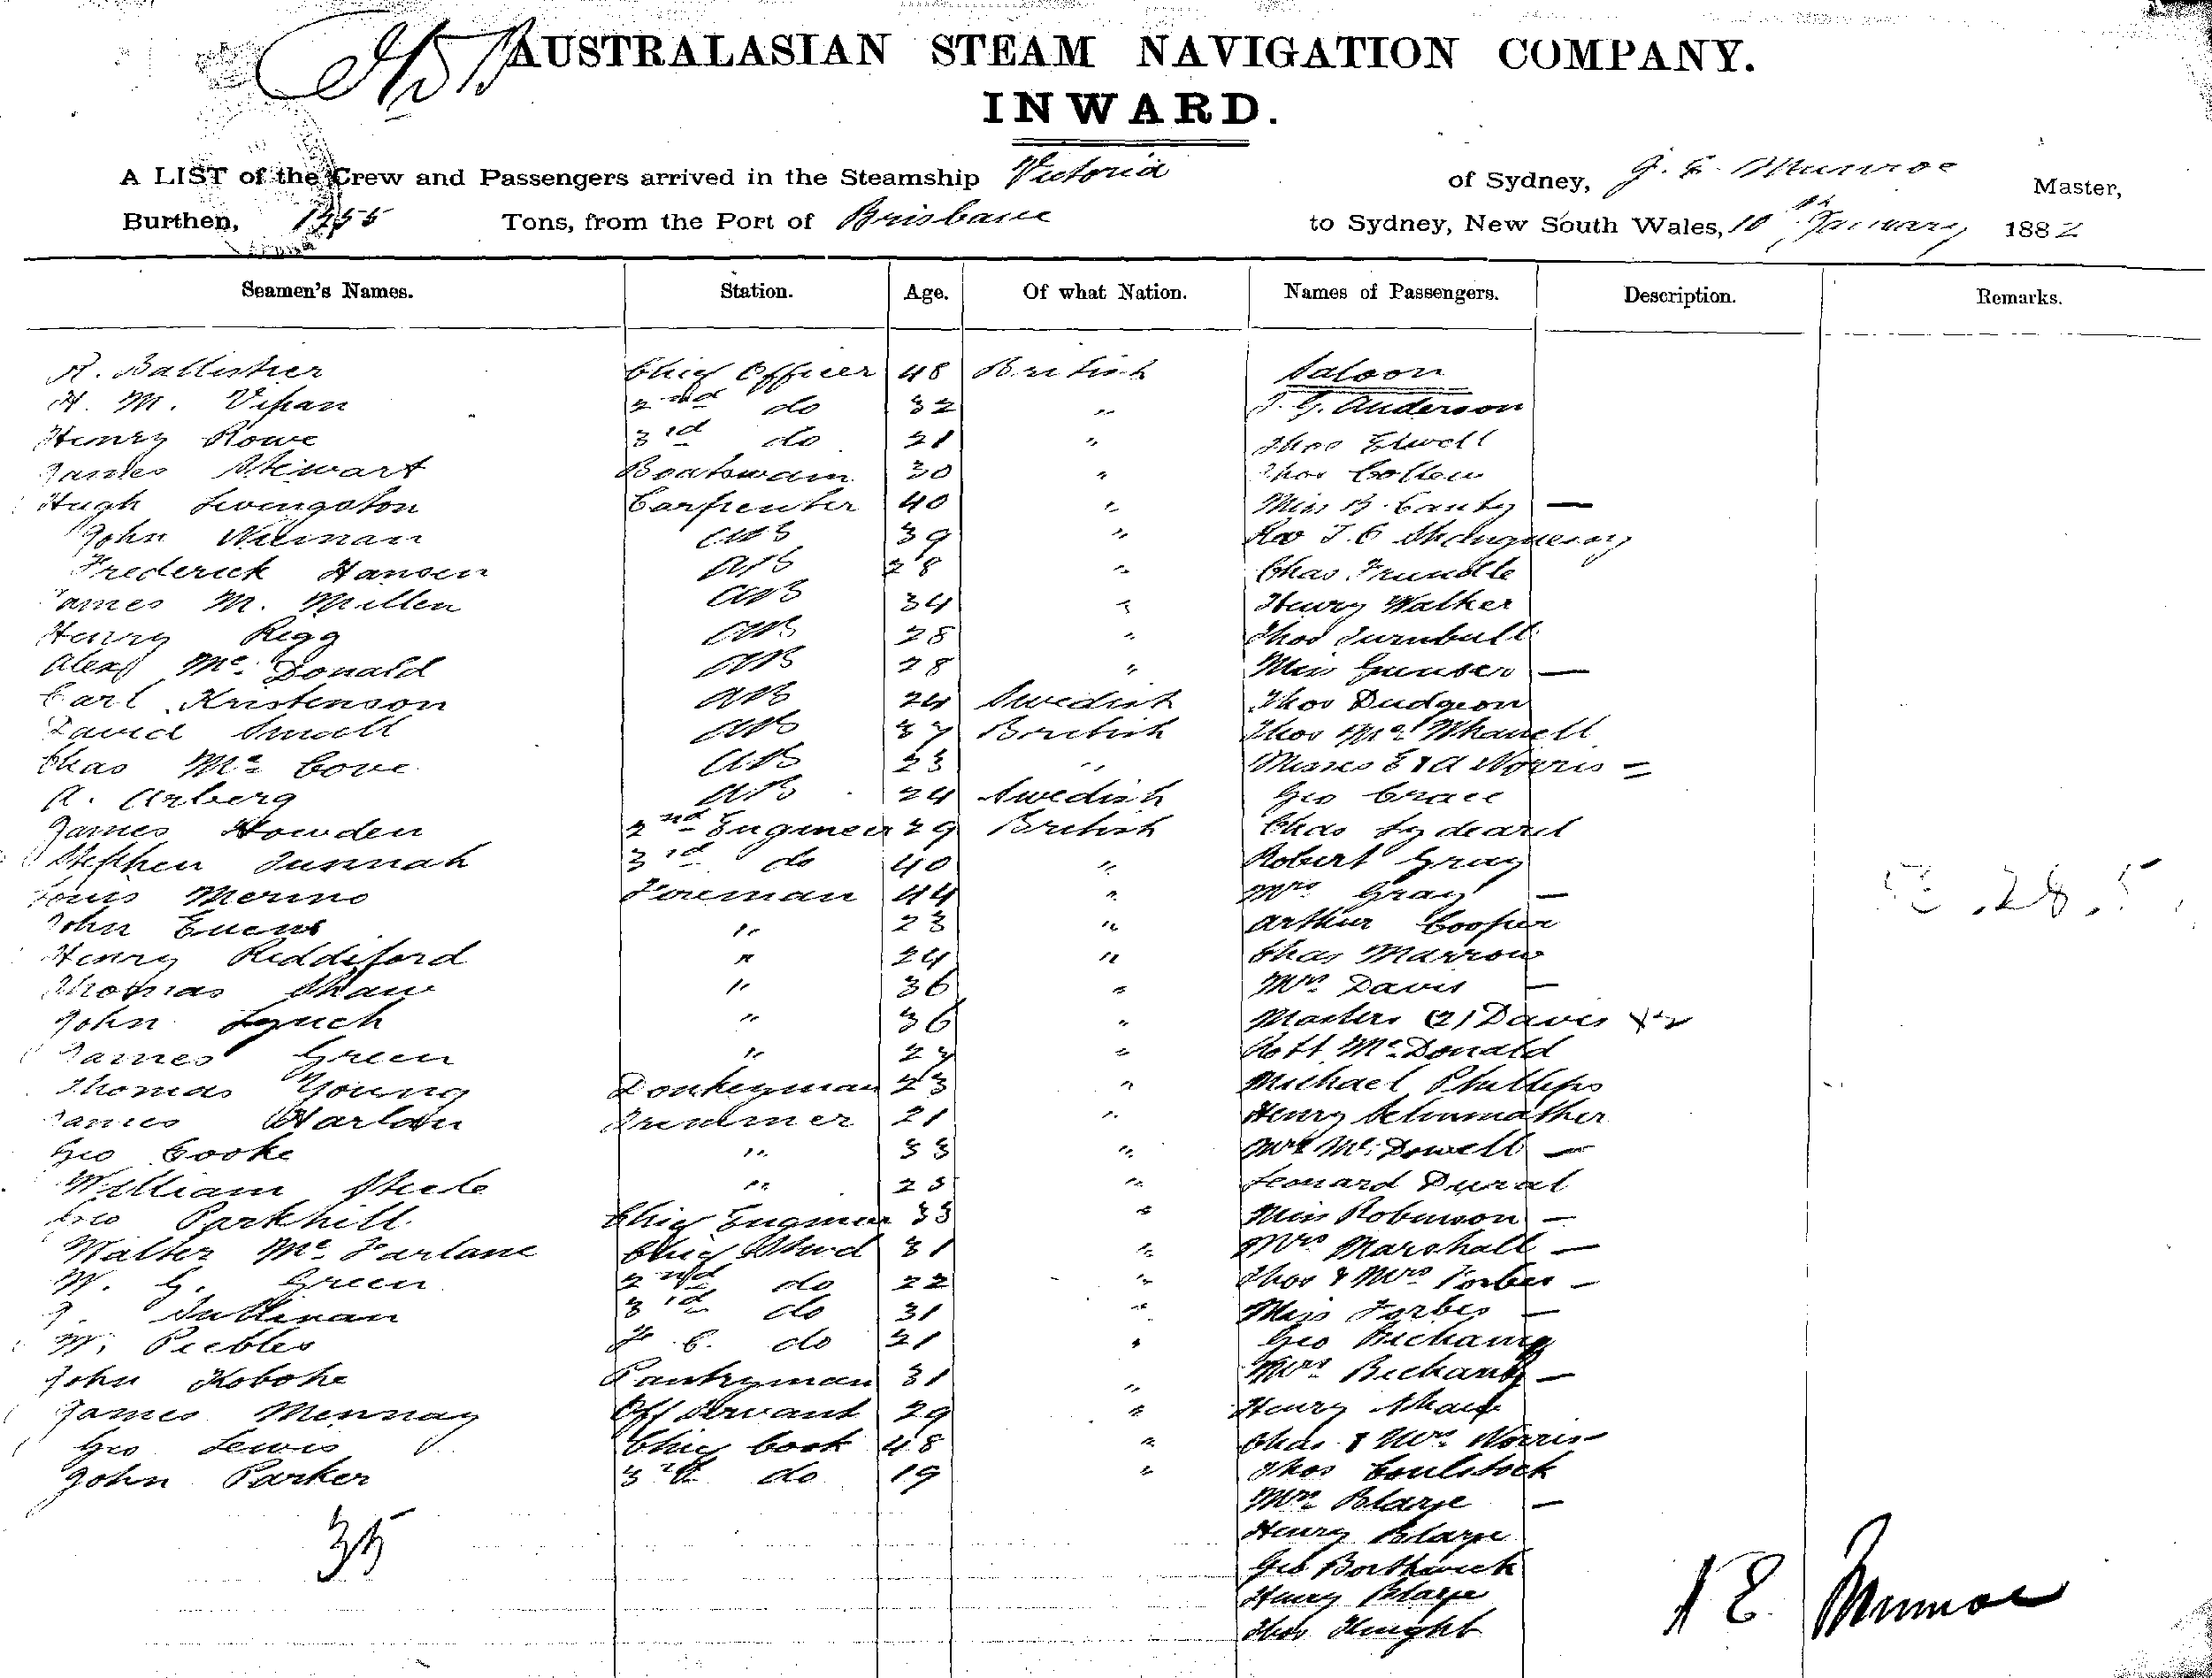 AUSTRALASIAN STEAM NAVIGATION COMPANY.
INWARD.
A LIST of the Crew and Passengers arrived in the Steamship Victoria of Sydney, J. E. Munroe Master,
Burthen, Tons, from the Port of Brisbane to Sydney, New South Wales, 10th January 1882
Seamen's Names. Station. Age. Of what Nation. Names of Passengers. Description. Remarks.
R. Ballistier Chief Officer 48 British Saloon
H. M. Vipan 2nd do 32 " J. G. Anderson
Henry Rowe 3rd do 21 " Thos Elwell
James Stewart Boatswain 30 " Thos Collew
Hugh Livingston Carpenter 40 " Miss B. Canty —
John AB 39 " Rev J. C
Frederick Hansen AB 28 " Chas Trundle
James M. Millen AB 34 " Henry Walker
Henry Rigg AB 28 " Thos Turnbull
Alexr Mc Donald AB 28 " Miss Gunber —
Carl Kristenson AB 24 Swedish Thos Dudgeon
David Small AB 37 British Thos Whanell
Chas Mc Cove AB 23 " Misses E & A Norris =
A. Arberg AB 24 Swedish Geo Grace
James Howden 2nd Engineer 29 British Chas Lydeard
Stephen Tunnah 3rd do 40 " Robert Gray
Louis Merino Fireman 44 " Mrs Gray —
John Euens " 23 " Arthur Cooper
Henry Reddiford " 24 " Chas Marrow
Thomas Shaw " 36 " Mrs Davis —
John Lynch " 36 " Masters (2) Davis
James Green " 27 " Robt McDonald
Thomas Young Donkeyman 23 " Michael Phillips
James Harlan Trimmer 21 " Henry Schumather
Geo Cooke " 33 " Mrs McDowell —
William Steele " 25 " Leonard Durat
Geo Parkhill Chief Engineer 33 " Miss Robinson —
Walter Mc Farlane Chief Stwd 31 " Mrs Marshall —
W. G. Green 2nd do 22 " Thos & Mrs Forbes —
J. Sullivan 3rd do 31 " Miss Forbes —
W. Peebles F. C. do 21 " Geo
John Kobohe Pantryman 31 " Mrs —
James Mennay Off Servant 29 " Henry Shaw
Geo Lewis Chief Cook 48 " Chas & Mrs Norris
John Parker do 19 " Thos Coulstock
Mrs Blarye —
35 Henry Blarye
Geo Borthwick
Henry Blarye
Thos Knight
J E Munroe